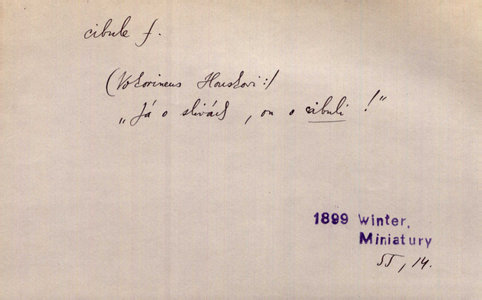 cibule f.
(Vokorineus Houskovi:)
„Já o slivách, on o cibuli !"
1899 Winter,
Miniatury
ST, 14.